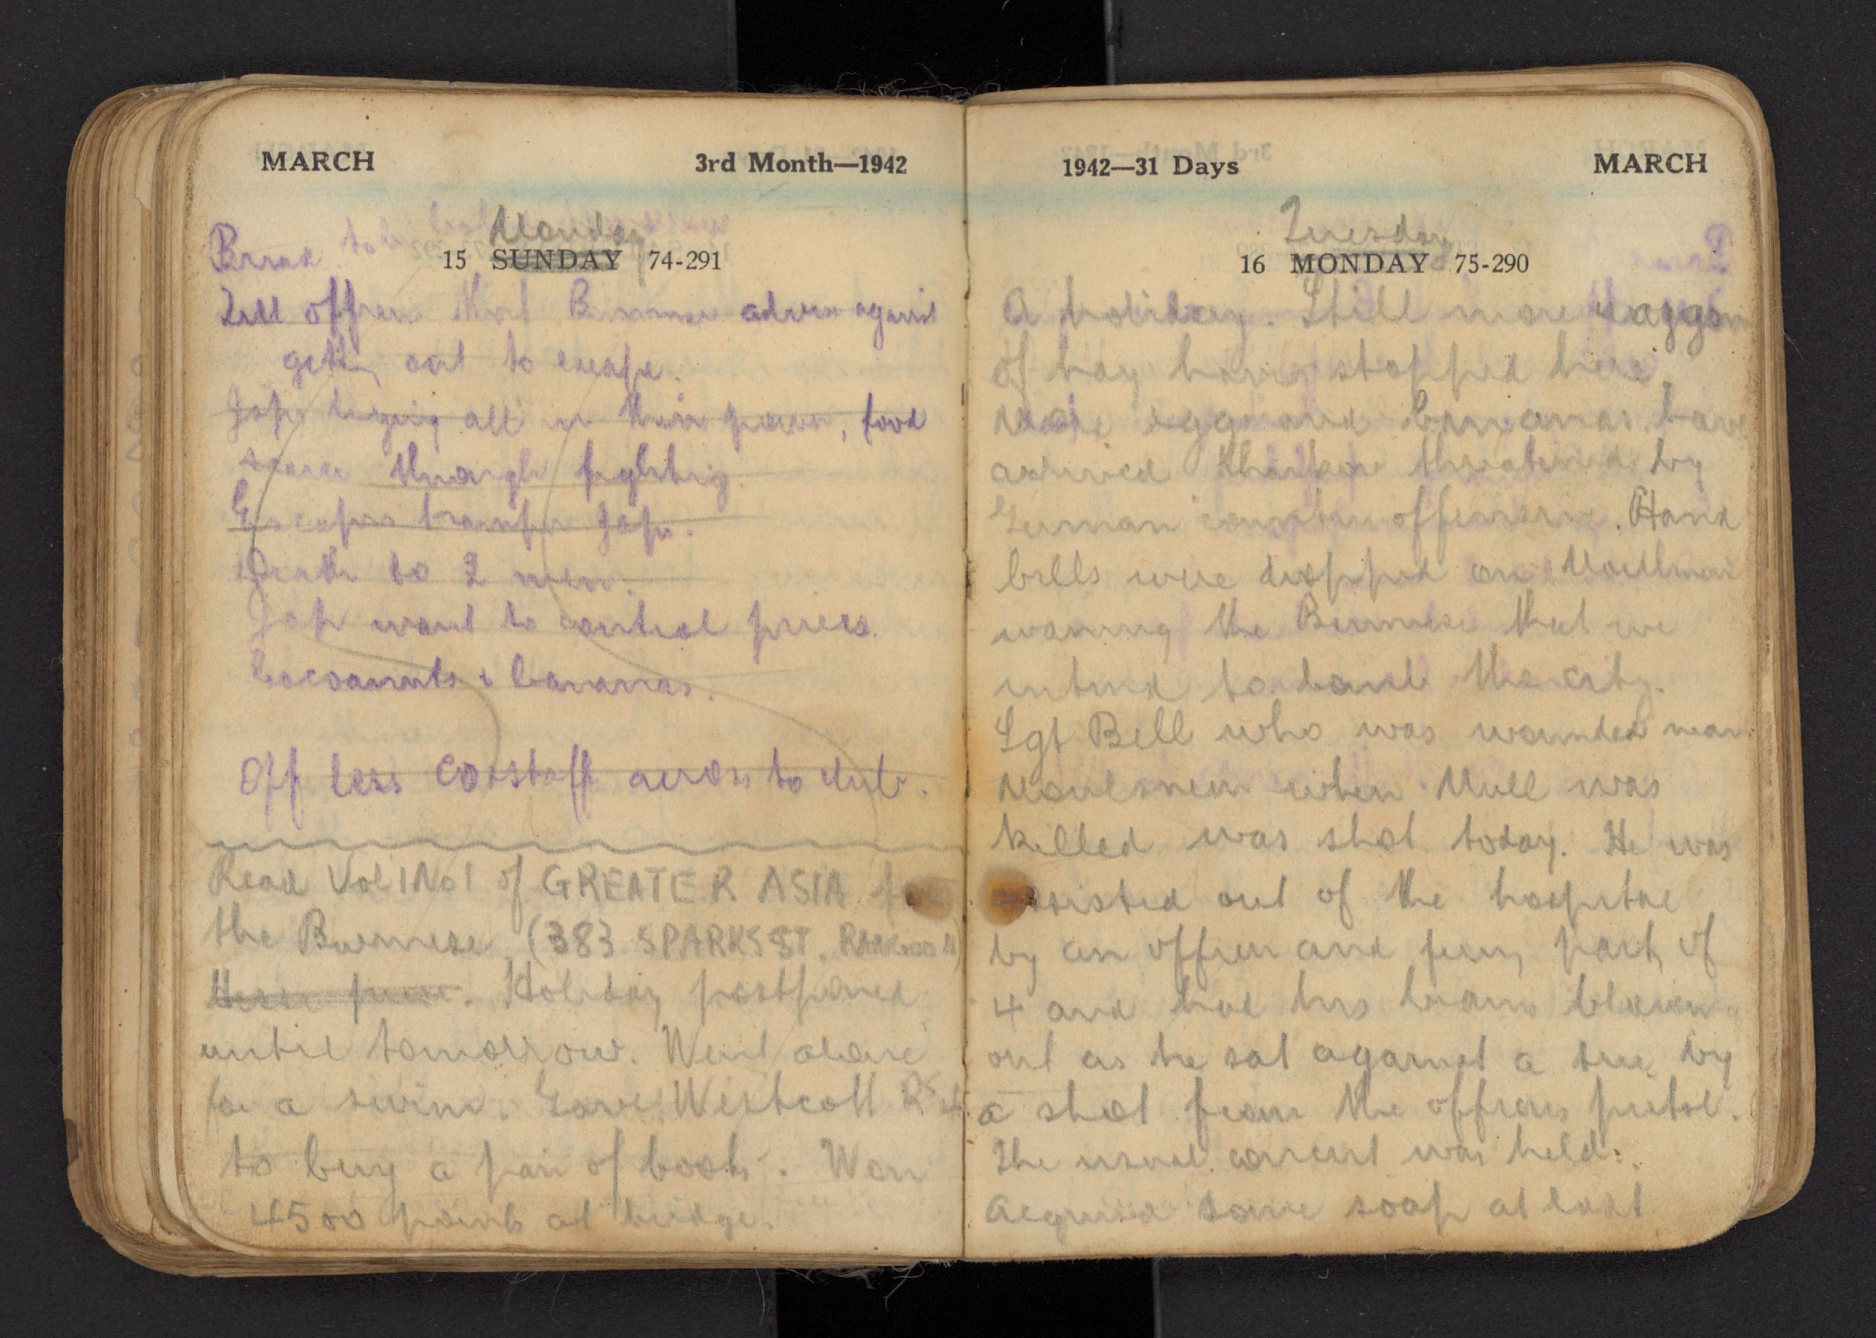 MARCH 3rd Month—1942
Monday
15 SUNDAY 74-291
Tell officers that Burmese advise against
getting out to escape.
Japs trying all in their power, food
scarce through fighting.
Escapes Japs.
Death to 2 men.
Jap want to control prices
Cocoanuts & bananas.
Off less CO & staff across to club.
Read Vol 1 No 1 of GREATER ASIA for
the Burmese (383 SPARKS ST. RANGOON)
Holiday postponed
until tomorrow. Went alone
for a swim. Gave Westcott Rs 4
to buy a pair of boots. Won
4500 points at bridge.
1942—31 Days MARCH
Tuesday
16 MONDAY 75-290
A holiday. Still more waggons
of hay have stopped here.
eggs and bananas have
arrived threatened by
German counter offensive. Hand
bills were dropped on Moulmein
warning the Burmese that we
intend to bomb the city.
Sgt Bell who was wounded near
Moulmein when Mull was
killed was shot today. He was
assisted out of the hospital
by an officer and firing party of
4 and had his brains blown
out as he sat against a tree by
a shot from the officers pistol.
The usual concert was held.
Acquired some soap at last